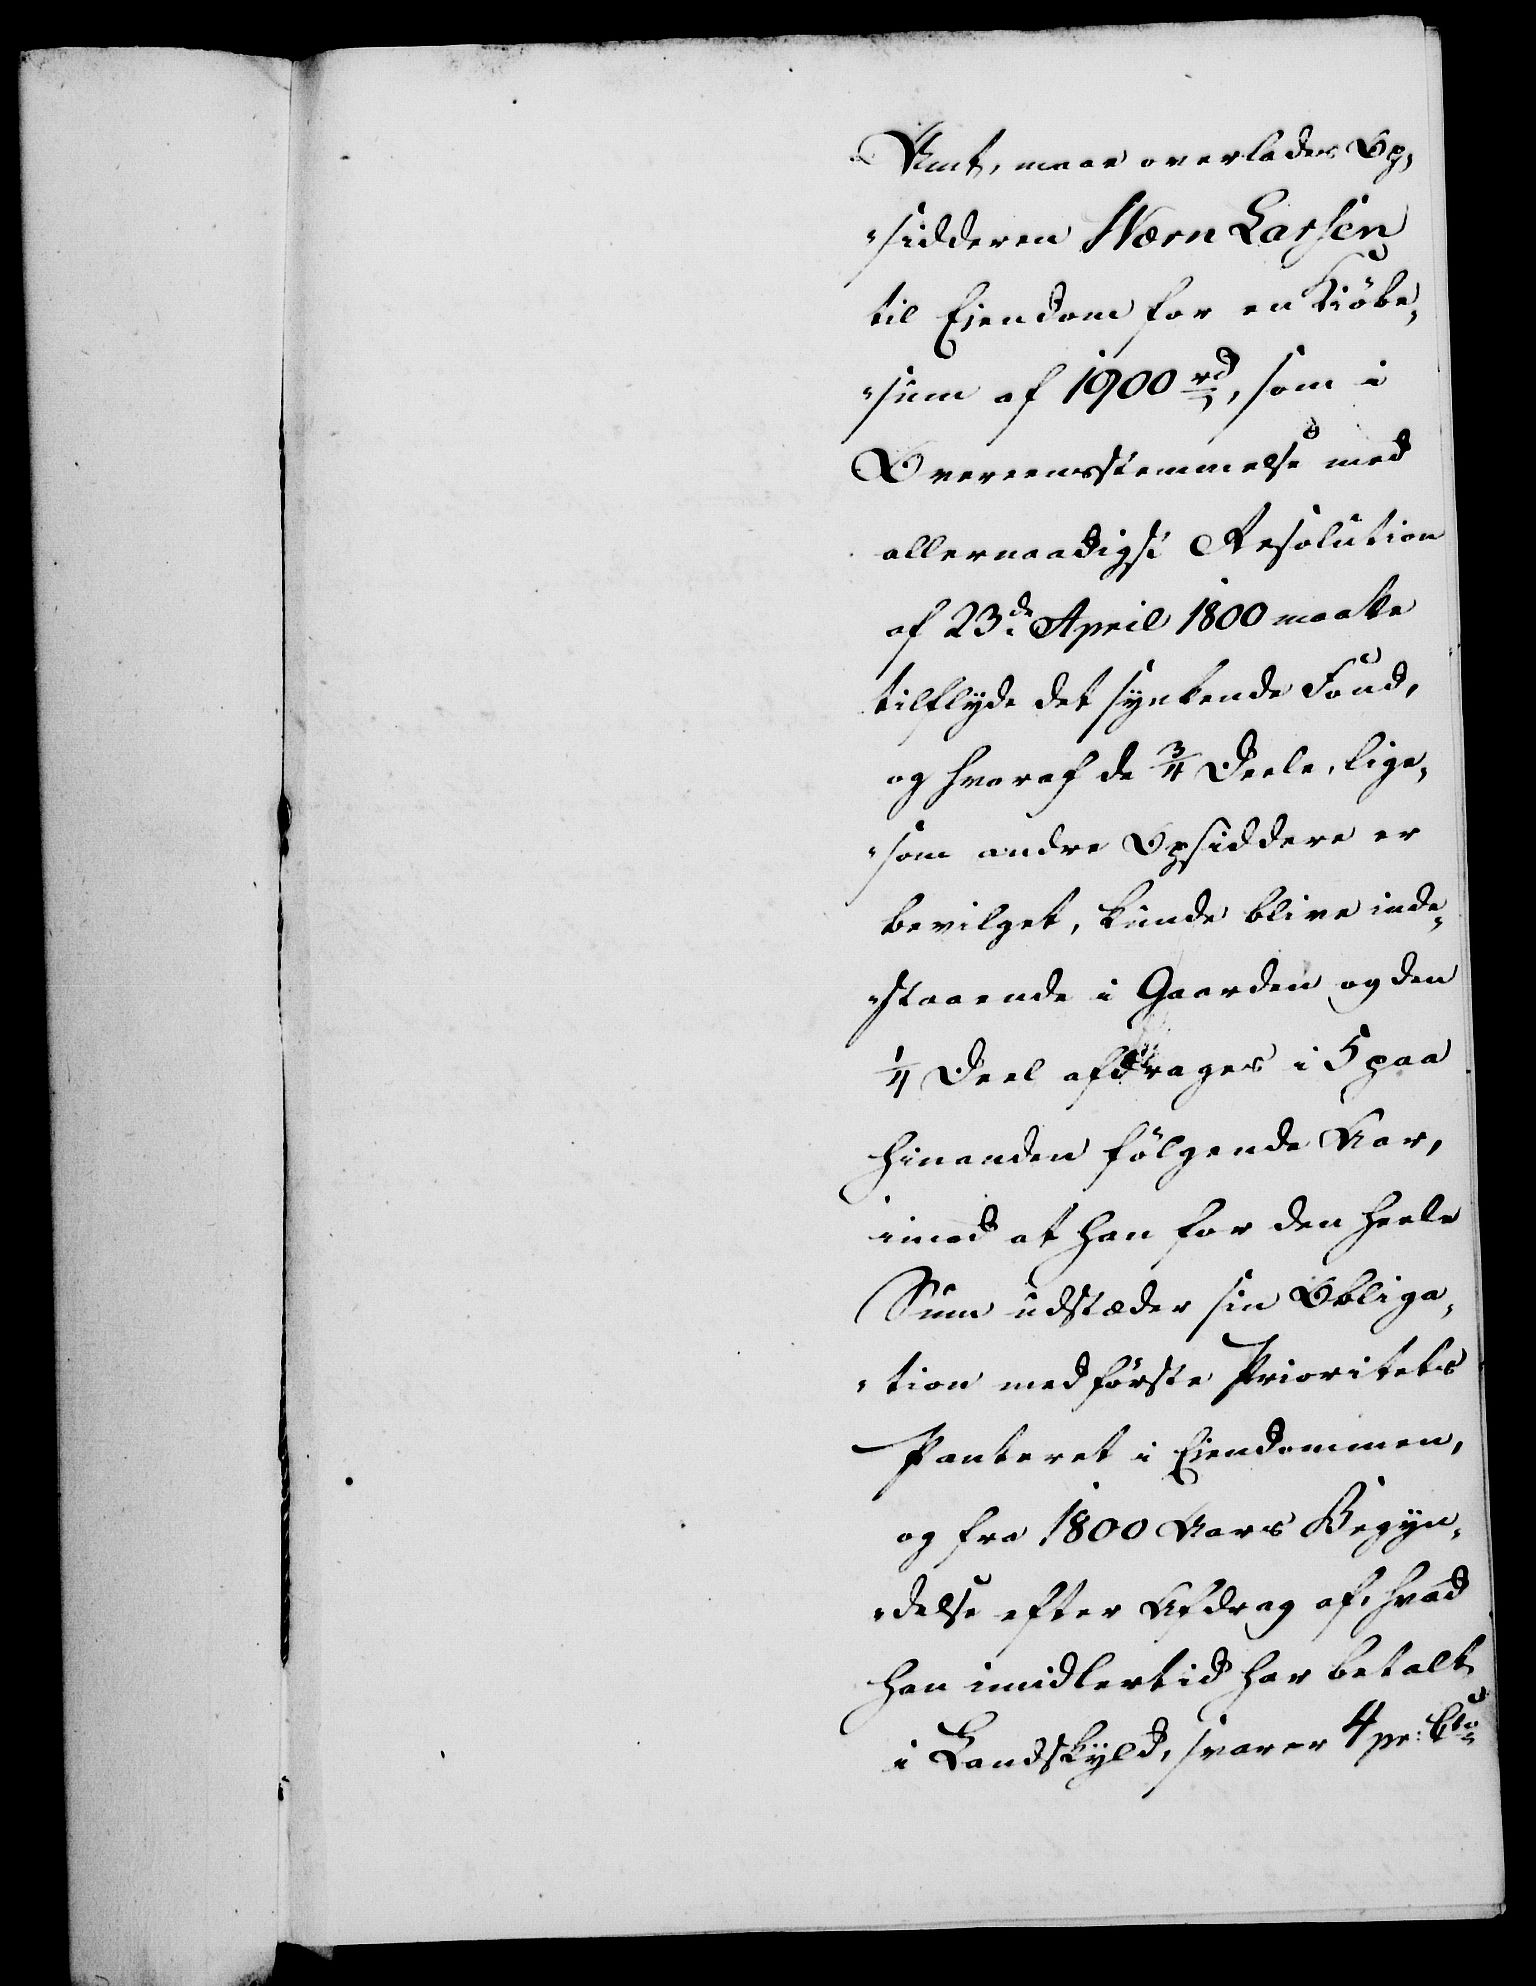 Amt, maae overlades Op-
-sidderen Iværn Larsen
til Eiendom for en Kiöbe-
-sum af 1900 rd, som i
Overeensstemmelse med
allernaadigst Resolution
af 23de April 1800 maatte
tilflyde det synkende Fond,
og hvoraf de 3/4 Deele, lige-
-som andre Opsiddere er
bevilget, kunde blive inde-
-staaende i Gaarden og den
1/4 Deel afdrages i 5 paa
hinanden fölgende Aar,
imod at han for den heele
Sum udstæder sin Obliga-
-tion med förste Prioritets
Panteret i Eiendommen,
og fra 1800 Aars Begyn-
-delse efter Afdrag af, hvad
han imidlertid har betalt
i Landskyld, svarer 4 pr: Cto